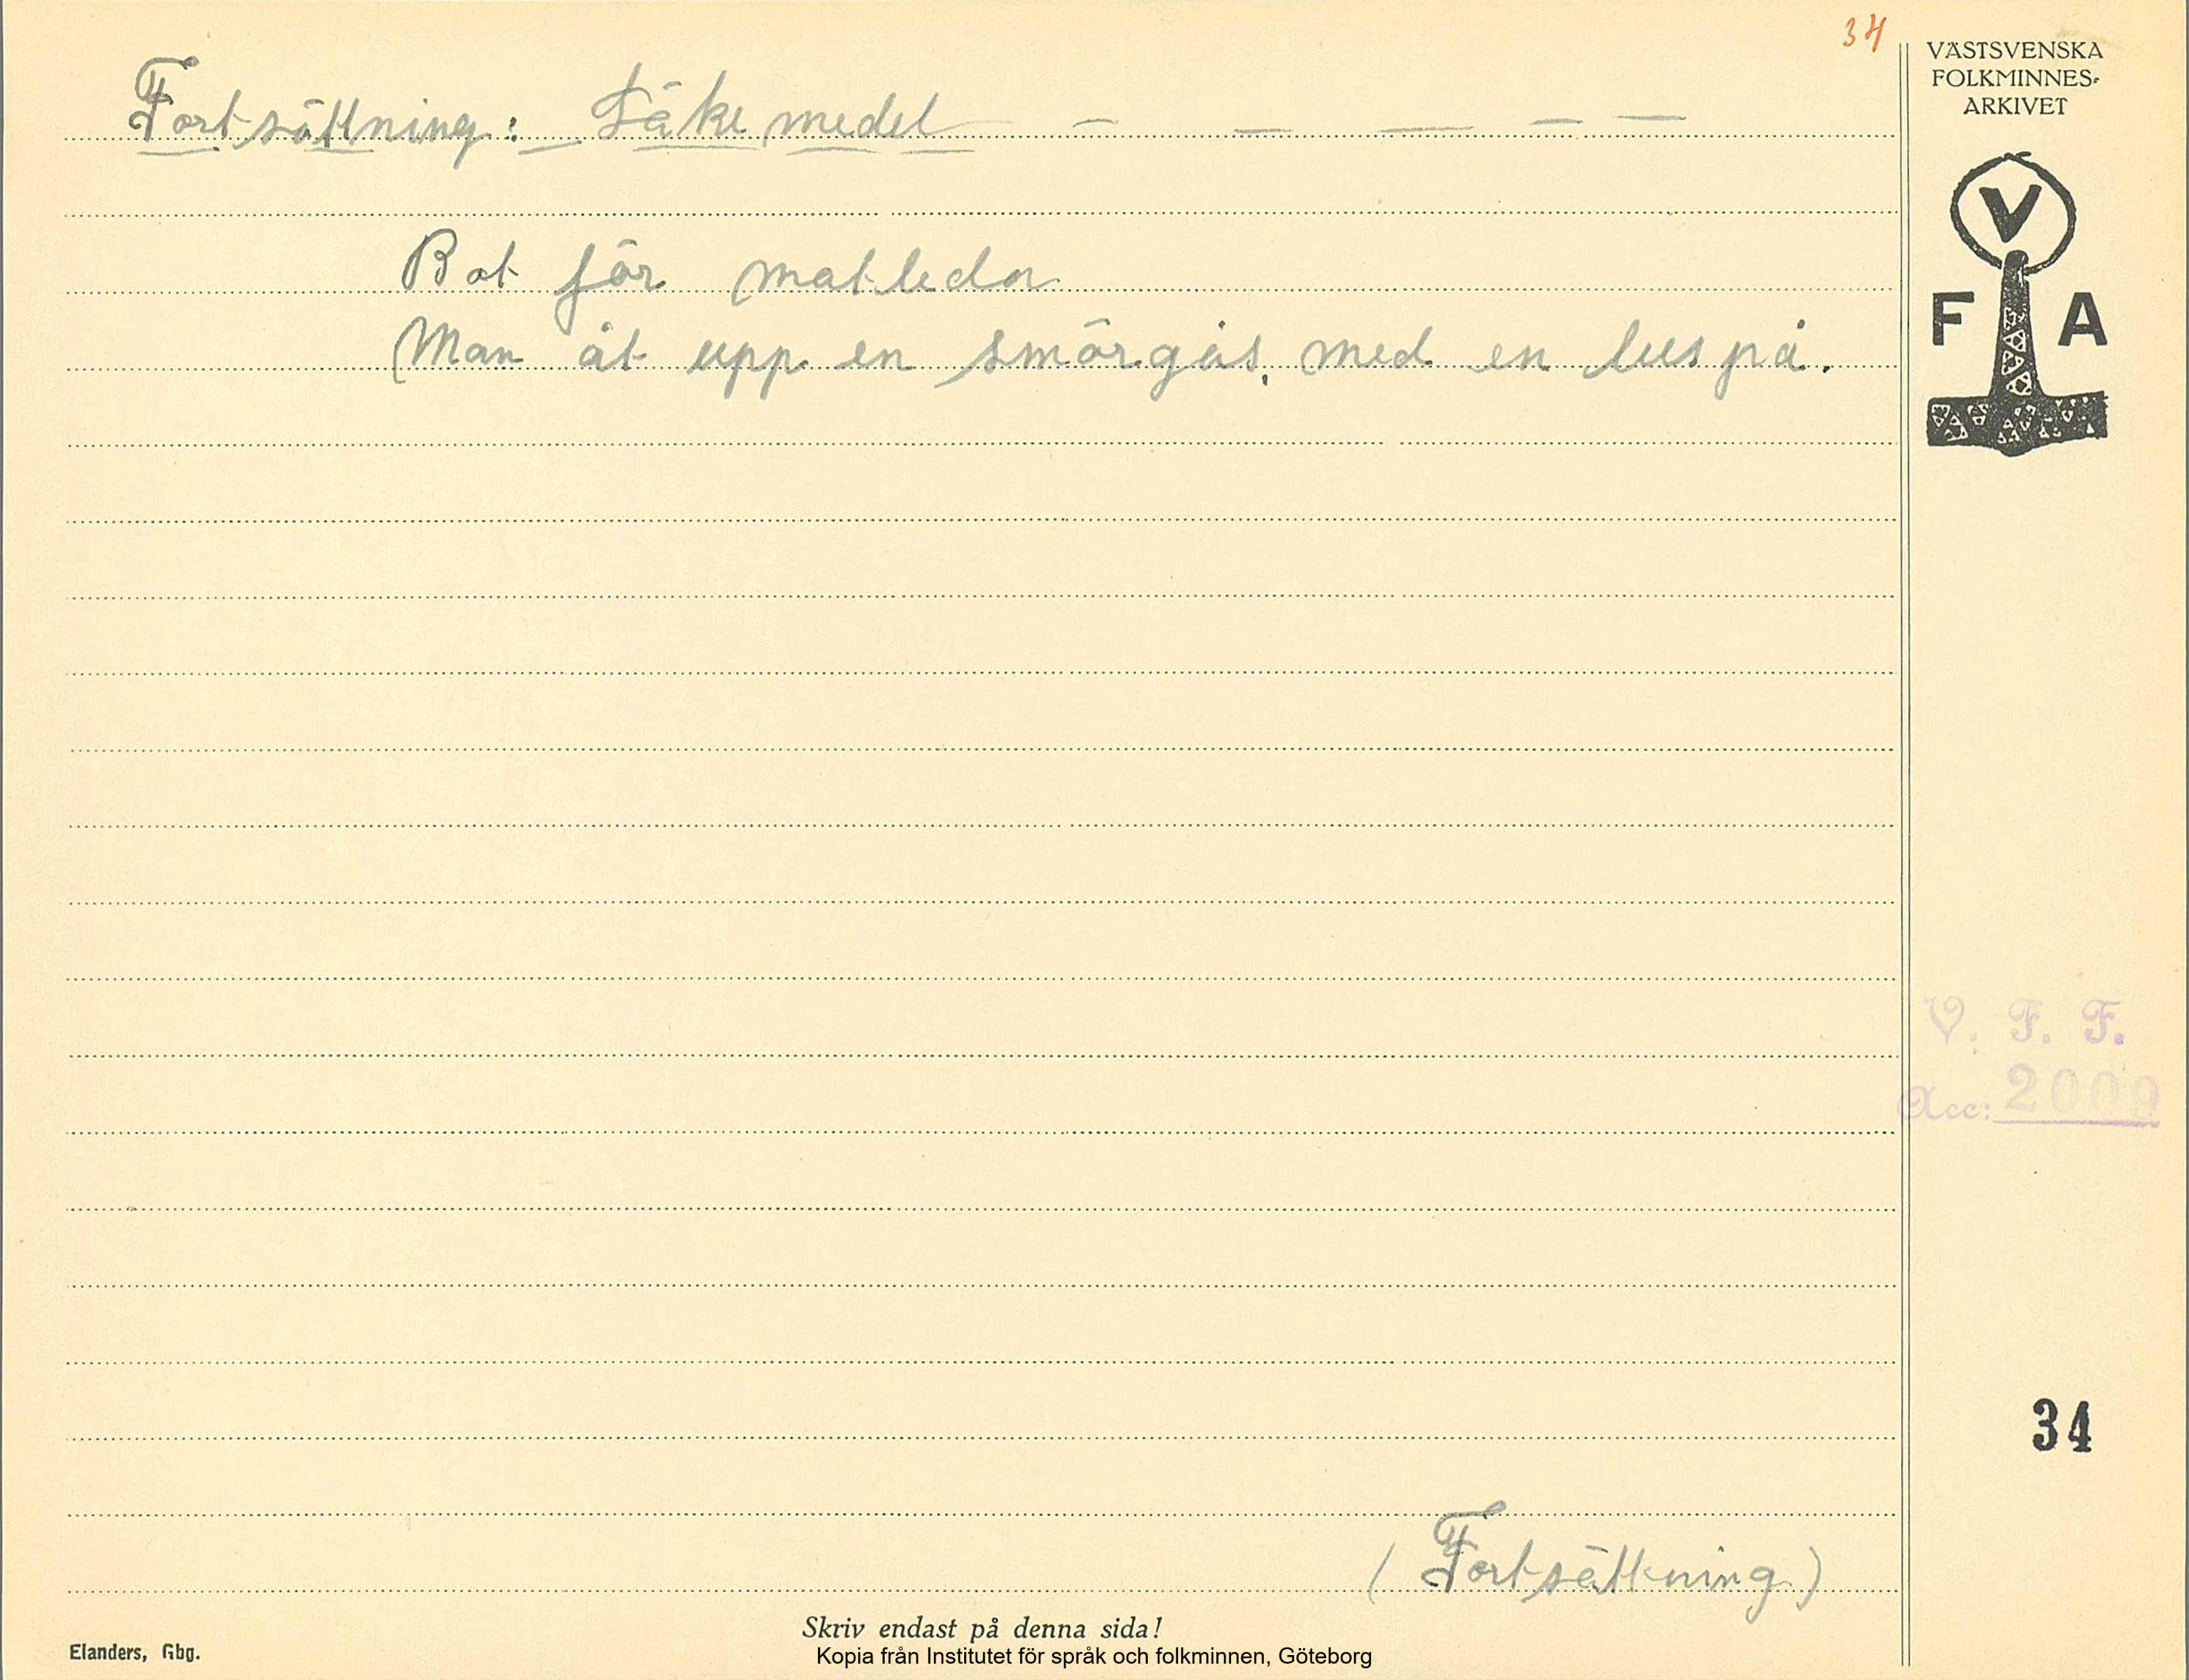 34
Fortsättning: Läkemedel — — — — —
Bot för matleda
Man åt upp en smörgås, med en lus på.
(Fortsättning)
VÄSTSVENSKA
FOLKMINNES-
ARKIVET
V
F A
V. F. F.
Acc: 2009
34
Skriv endast på denna sida!
Elanders, Gbg.
Kopia från Institutet för språk och folkminnen, Göteborg